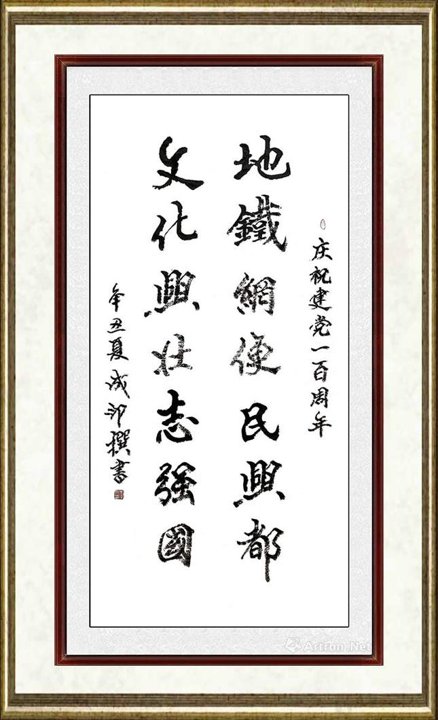 庆祝建党一百周年
地鐵網使民興都
文化興壮志强國
辛丑夏成卯撰書